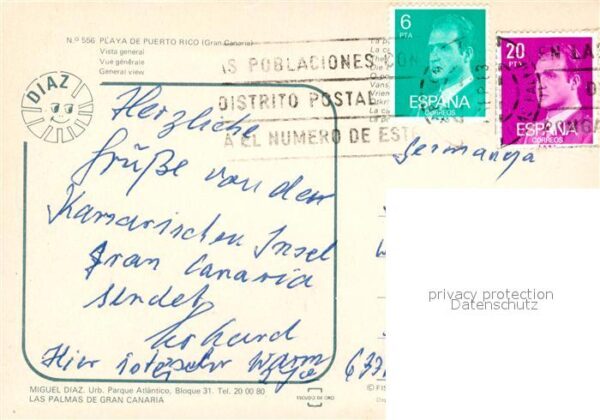 N.º 556 PLAYA DE PUERTO RICO (Gran Canaria)
Vista general
Vue générale
General view
DIAZ
6
PTA
ESPAÑA
CORREOS
20
PTS
ESPAÑA
CORREOS
AS POBLACIONES CON
EN LAS
DISTRITO POSTAL
A EL NUMERO DE ESTE
Germanya
Herzliche
Grüße von der
Kanarischen Insel
Gran Canaria
sendet
Erhard
Hier ist es sehr warm
MIGUEL DIAZ. Urb. Parque Atlántico, Bloque 31. Tel. 20 00 80
LAS PALMAS DE GRAN CANARIA
ESCUDO DE ORO
privacy protection
Datenschutz